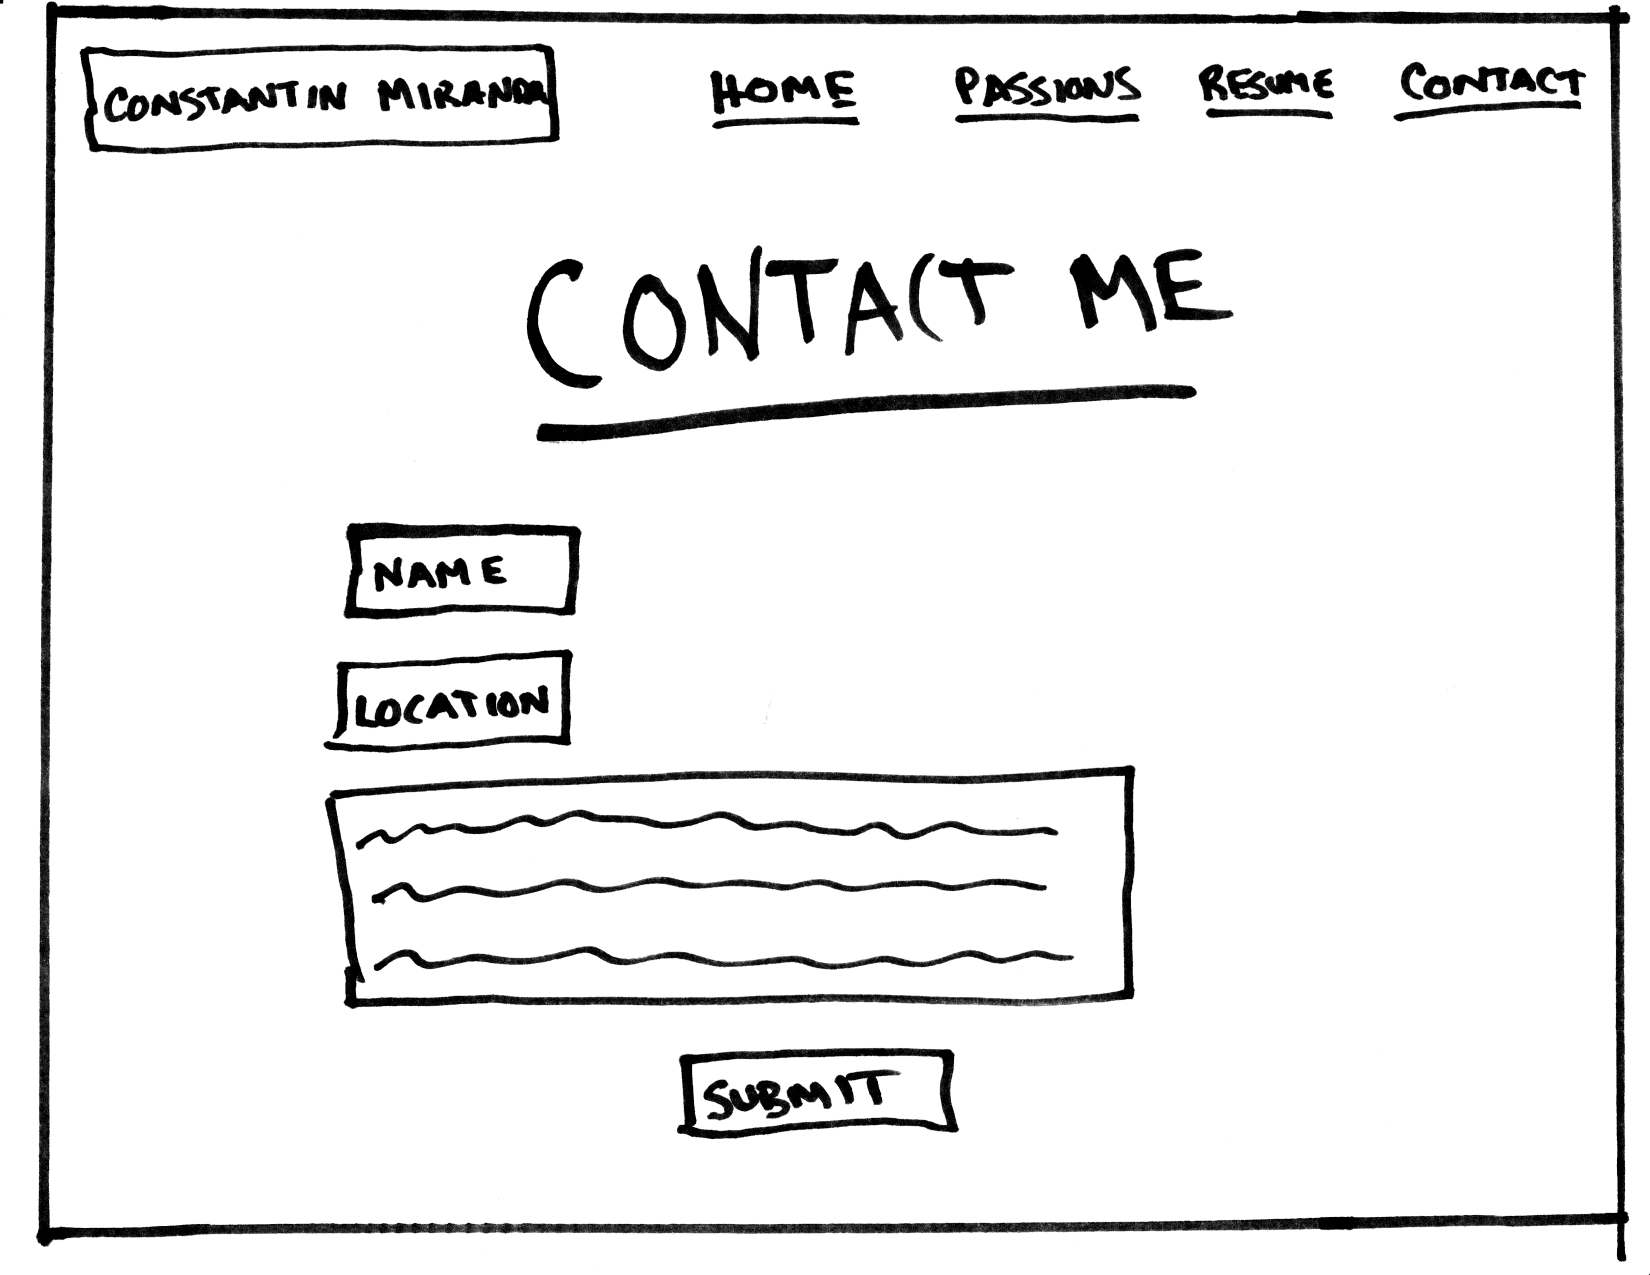 CONSTANTIN MIRANDA HOME PASSIONS RESUME CONTACT
CONTACT ME
NAME
LOCATION
SUBMIT